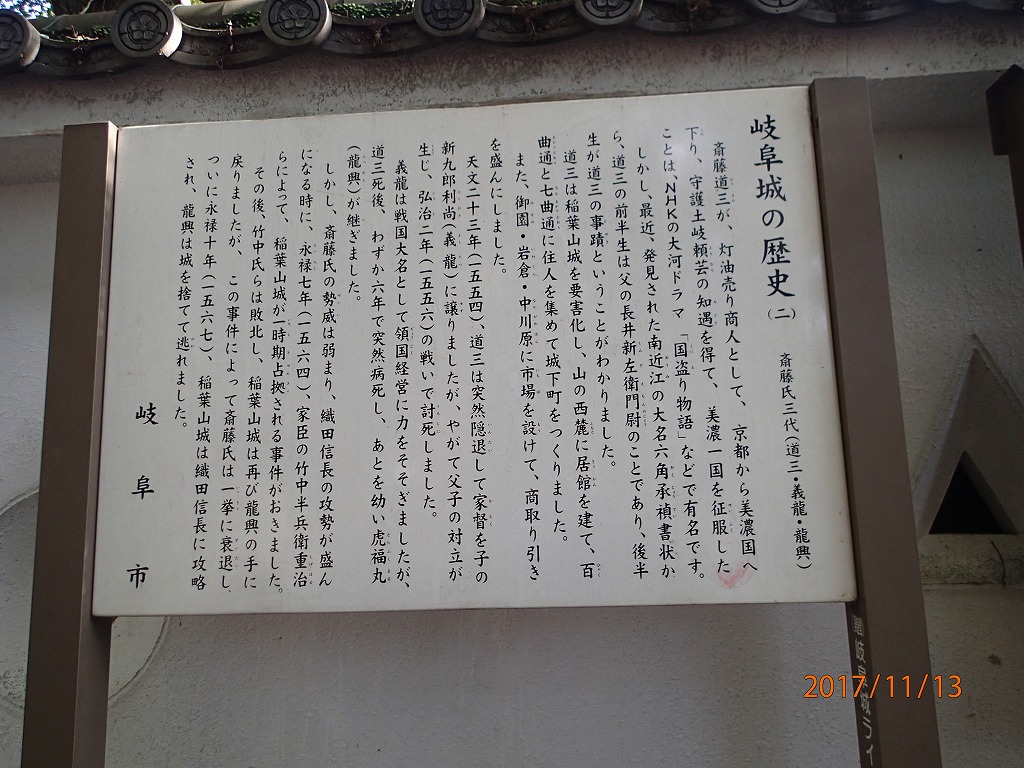 岐阜城の歴史(二)
斎藤氏三代(道三・義龍・龍興)
斎藤道三が、灯油売り商人として、京都から美濃国へ
下り、守護土岐頼芸の知遇を得て、美濃一国を征服した
ことは、NHKの大河ドラマ「国盗り物語」などで有名です。
しかし、最近、発見された南近江の大名六角承禎書状か
ら、道三の前半生は父の長井新左衛門尉のことであり、後半
生が道三の事蹟ということがわかりました。
道三は稲葉山城を要害化し、山の西麓に居館を建て、百
曲通と七曲通に住人を集めて城下町をつくりました。
また、御園・岩倉・中川原に市場を設けて、商取り引き
を盛んにしました。
天文二十三年(一五五四)、道三は突然隠退して家督を子の
新九郎利尚(義龍)に譲りましたが、やがて父子の対立が
生じ、弘治二年(一五五六)の戦いで討死しました。
義龍は戦国大名として領国経営に力をそそぎましたが、
道三死後、わずか六年で突然病死し、あとを幼い虎福丸
(龍興)が継ぎました。
しかし、斎藤氏の勢威は弱まり、織田信長の攻勢が盛ん
になる時に、永禄七年(一五六四)、家臣の竹中半兵衛重治
らによって、稲葉山城が一時期占拠される事件がおきました。
その後、竹中氏らは敗北し、稲葉山城は再び龍興の手に
戻りましたが、この事件によって斎藤氏は一挙に衰退し、
ついに永禄十年(一五六七)、稲葉山城は織田信長に攻略
され、龍興は城を捨てて逃れました。
岐阜市
岐阜城ライ
2017/11/13